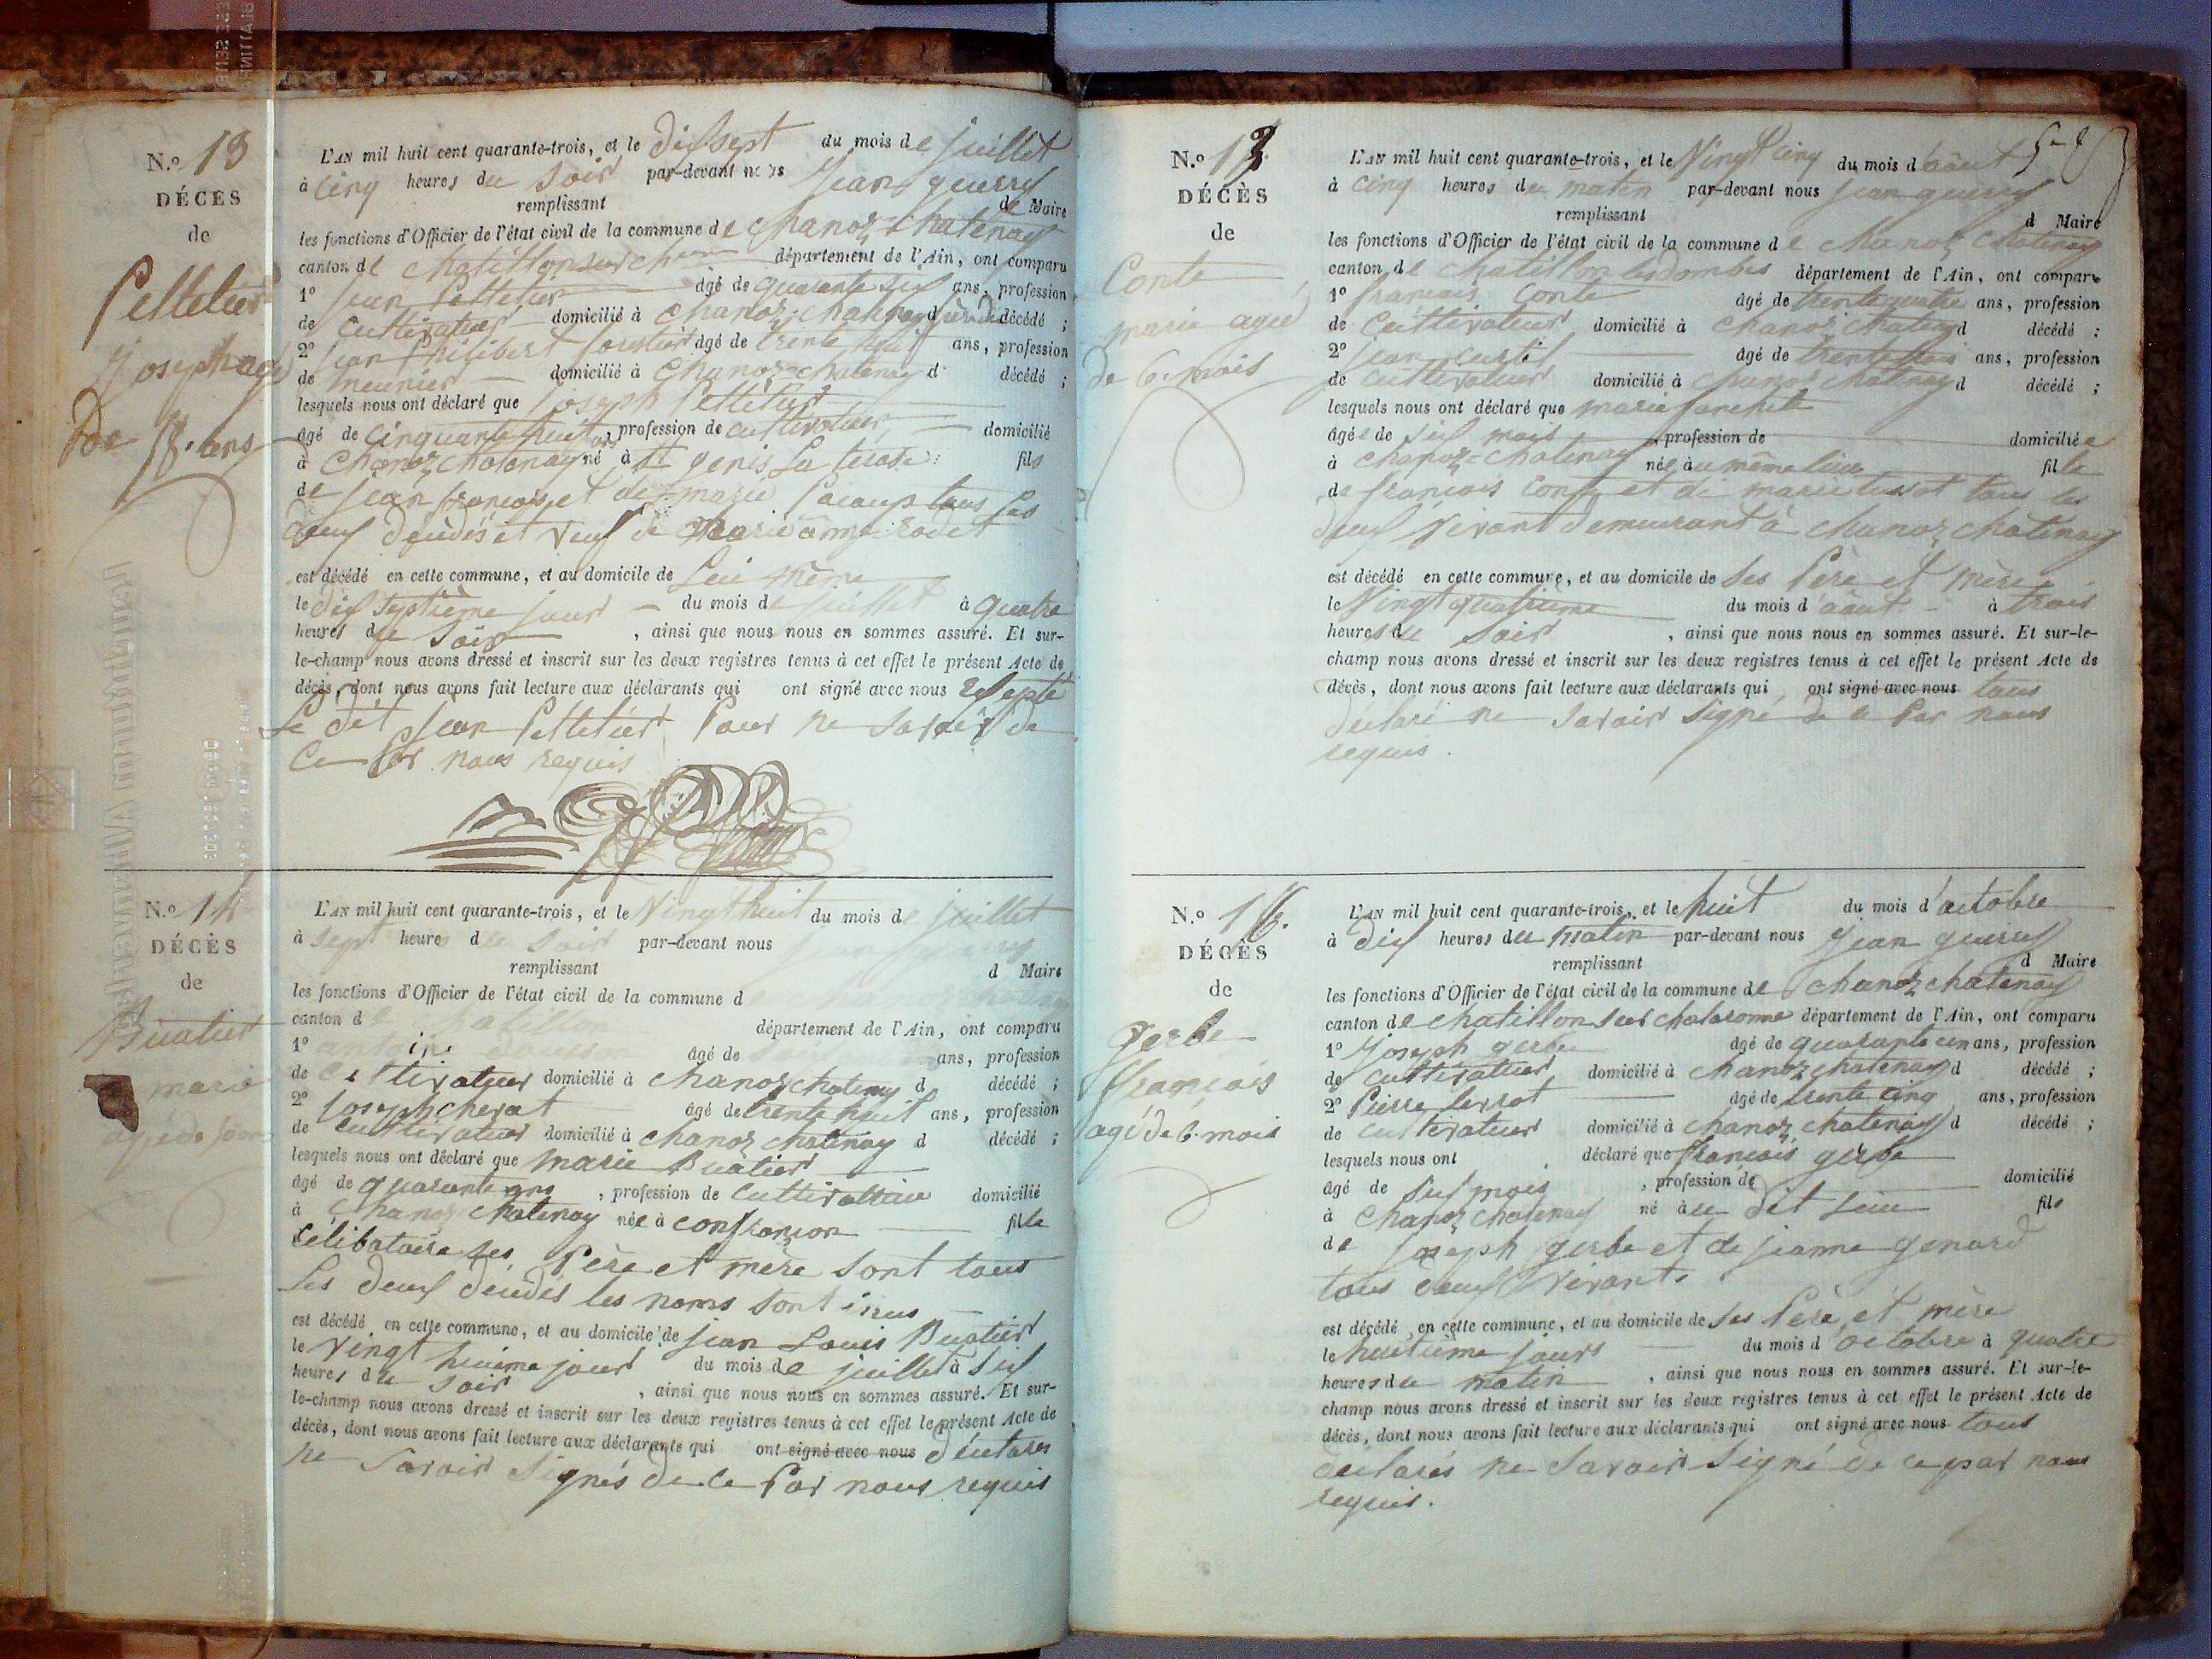 N.o 13
DÉCÈS
de
Pelletier
joseph agé
de 58. ans
L'AN mil huit cent quarante-trois, et le dix sept du mois de juillet
à cinq heures du soir par-devant nous jean guerry
remplissant de Maire
les fonctions d'Officier de l'état civil de la commune de chanoz-chatenay
canton de chatillon sur département de l'Ain, ont comparu
1o jean Pelletier âgé de quarante six ans, profession
de cultivateur domicilié à chanoz-chatenay décédé ;
2o jean Philibert âgé de trente huit ans, profession
de meunier domicilié à chanoz-chatenay d décédé ;
lesquels nous ont déclaré que joseph Pelletier
âgé de cinquante huit ans, profession de cultivateur domicilié
à chanoz chatenay né à st genis fils
de jean françois et de marie tous les
deux décédés et veuf de marie anne rodet
est décédé en cette commune, et au domicile de lui même
le dix septième jour du mois de juillet à quatre
heures du soir , ainsi que nous nous en sommes assuré. Et sur-
le-champ nous avons dressé et inscrit sur les deux registres tenus à cet effet le présent Acte de
décès, dont nous avons fait lecture aux déclarants qui ont signé avec nous excepté
le dit jean Pelletier pour ne savoir de
ce par nous requis
N.o 14
DÉCÈS
de
Buatier
marie
L'AN mil huit cent quarante-trois, et le vingt huit du mois de juillet
à sept heures du soir par-devant nous
remplissant d Maire
les fonctions d'Officier de l'état civil de la commune d
canton de département de l'Ain, ont comparu
1o âgé de ans, profession
de cultivateur domicilié à chanoz chatenay d décédé ;
2o joseph cherat âgé de trente huit ans, profession
de cultivateur domicilié à chanoz chatenay d décédé ;
lesquels nous ont déclaré que marie Buatier
âgé de quarante ans , profession de cultivatrice domicilié
à chanoz chatenay née à confrançon fille
célibataire ses Père et mère sont tous
les deux décédés les noms sont
est décédé en cette commune, et au domicile de jean Louis Buatier
le vingt huième jour du mois de juillet à six
heures du soir , ainsi que nous nous en sommes assuré. Et sur-
le-champ nous avons dressé et inscrit sur les deux registres tenus à cet effet le présent Acte de
décès, dont nous avons fait lecture aux déclarants qui ont signé avec nous déclarés
ne savoir signés de ce Par nous requis
N.o 15
DÉCÈS
de
Conte
marie agée
de 6. mois
L'AN mil huit cent quarante-trois, et le vingt cinq du mois d'août
à cinq heures du matin par-devant nous jean guerry
remplissant d Maire
les fonctions d'Officier de l'état civil de la commune de chanoz chatenay
canton de chatillon les dombes département de l'Ain, ont comparu
1o françois Conte âgé de trente quatre ans, profession
de cultivateur domicilié à chanoz chatenay d décédé :
2o jean âgé de trente ans, profession
de cultivateur domicilié à chanoz chatenay d décédé ;
lesquels nous ont déclaré que marie
âgée de six mois , profession de domiciliée
à chanoz-chatenay née au même lieu fille
de françois Conte et de marie tous les
deux vivant demeurant à chanoz chatenay
est décédé en cette commune, et au domicile de ses Père et mère
le vingt quatrième du mois d'août à trois
heures du soir , ainsi que nous nous en sommes assuré. Et sur-le-
champ nous avons dressé et inscrit sur les deux registres tenus à cet effet le présent Acte de
décès, dont nous avons fait lecture aux déclarants qui ont signé avec nous tous
déclaré ne savoir signé de ce Par nous
requis.
N.o 16.
DÉCÈS
de
gerbe
françois
agé de 6. mois
L'AN mil huit cent quarante-trois, et le huit du mois d'octobre
à dix heures du matin par-devant nous jean guerry
remplissant d Maire
les fonctions d'Officier de l'état civil de la commune de chanoz chatenay
canton de chatillon sur chalaronne département de l'Ain, ont comparu
1o joseph gerbe âgé de quarante un ans, profession
de cultivateur domicilié à chanoz chatenay d décédé ;
2o Pierre âgé de trente cinq ans, profession
de cultivateur domicilié à chanoz chatenay d décédé ;
lesquels nous ont déclaré que françois gerbe
âgé de six mois , profession de domicilié
à chanoz chatenay né au dit lieu fils
de joseph gerbe et de jeanne genard
tous deux vivants
est décédé en cette commune, et au domicile de ses Père et mère
le huitième jours du mois d octobre à quatre
heures du matin , ainsi que nous nous en sommes assuré. Et sur-le-
champ nous avons dressé et inscrit sur les deux registres tenus à cet effet le présent Acte de
décès, dont nous avons fait lecture aux déclarants qui ont signé avec nous tous
declarés ne savoir signé de ce par nous
requis.